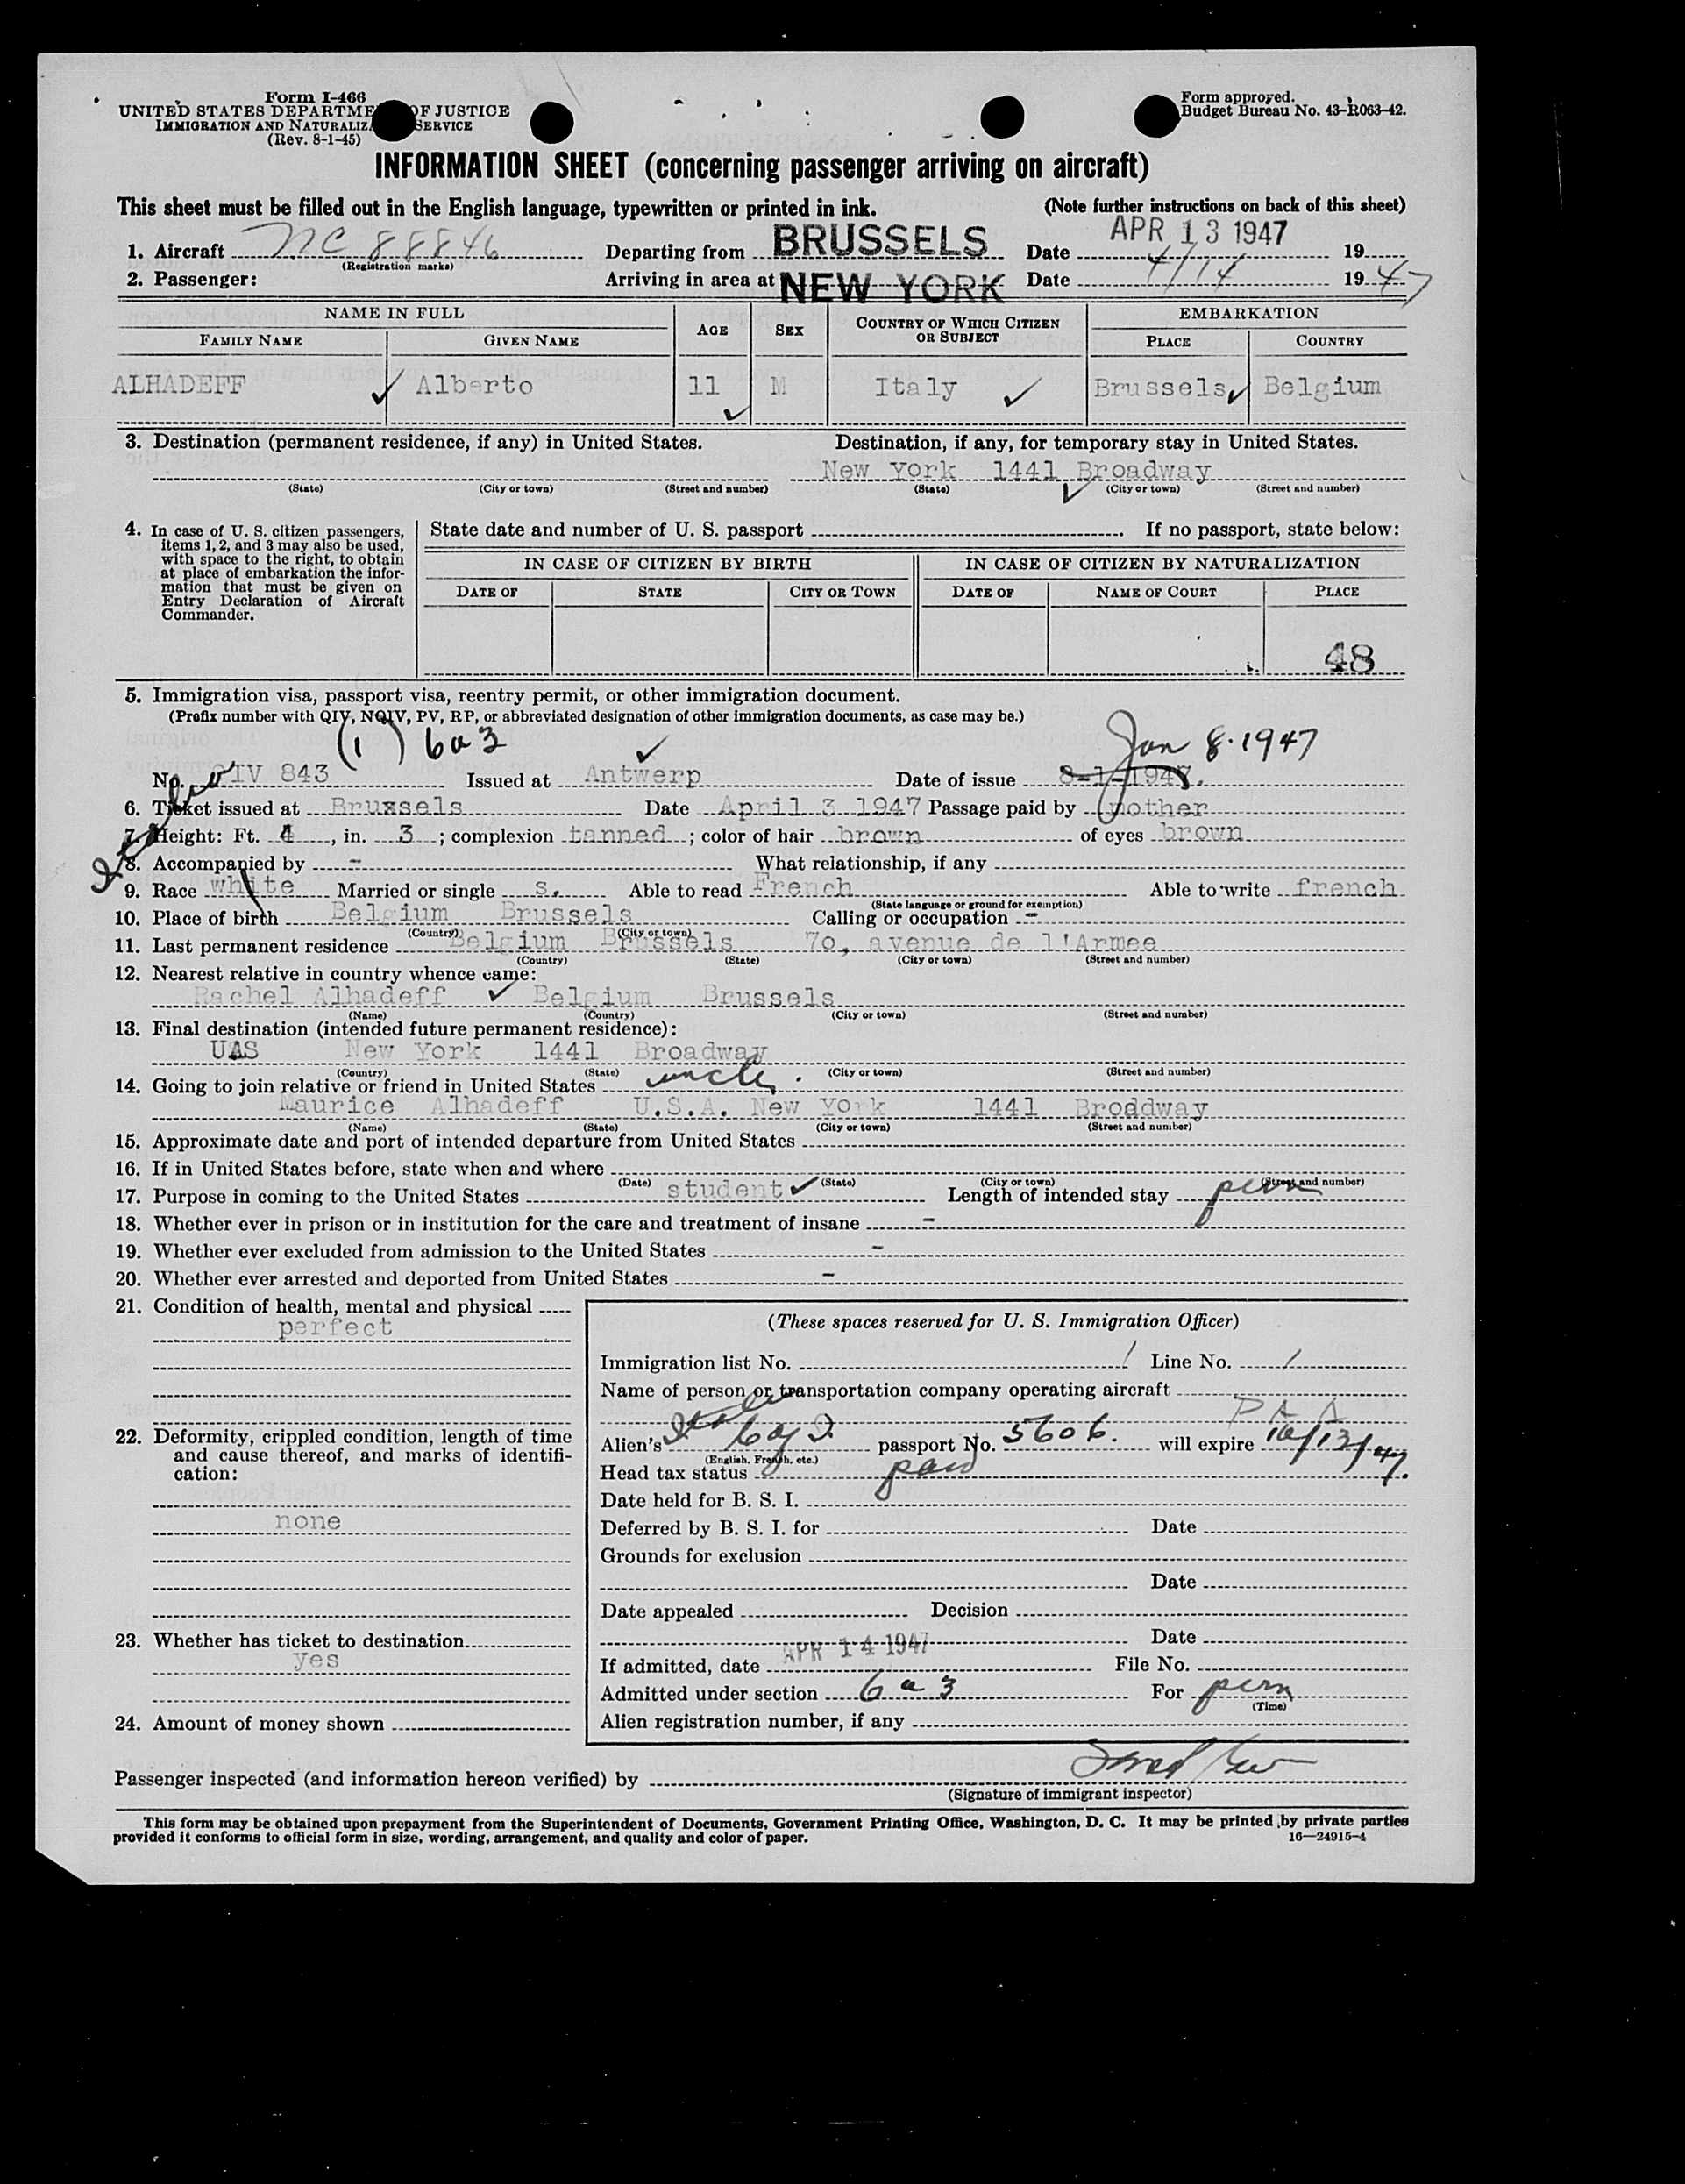 Form I-466
UNITED STATES DEPARTME OF JUSTICE
IMMIGRATION AND NATURALIZ SERVICE
(Rev. 8-1-45)
Form approved.
Budget Bureau No. 43-R063-42.
INFORMATION SHEET (concerning passenger arriving on aircraft)
This sheet must be filled out in the English language, typewritten or printed in ink. (Note further instructions on back of this sheet)
1. Aircraft NC 88846 Departing from BRUSSELS Date APR 13 1947 19
(Registration marks)
2. Passenger: Arriving in area at NEW YORK Date 4/14 1947
NAME IN FULL AGE SEX COUNTRY OF WHICH CITIZEN OR SUBJECT EMBARKATION
FAMILY NAME GIVEN NAME PLACE COUNTRY
ALHADEFF Alberto 11 M Italy Brussels Belgium
3. Destination (permanent residence, if any) in United States. Destination, if any, for temporary stay in United States.
New York 1441 Broadway
(State) (City or town) (Street and number) (State) (City or town) (Street and number)
4. In case of U. S. citizen passengers,
items 1, 2, and 3 may also be used,
with space to the right, to obtain
at place of embarkation the infor-
mation that must be given on
Entry Declaration of Aircraft
Commander.
State date and number of U. S. passport If no passport, state below:
IN CASE OF CITIZEN BY BIRTH IN CASE OF CITIZEN BY NATURALIZATION
DATE OF STATE CITY OR TOWN DATE OF NAME OF COURT PLACE
48
5. Immigration visa, passport visa, reentry permit, or other immigration document.
(Prefix number with QIV, NQIV, PV, RP, or abbreviated designation of other immigration documents, as case may be.)
(1) 6a3 Jan 8-1947
No. QIV 843 Issued at Antwerp Date of issue 8-1-1947.
6. Ticket issued at Bruxsels Date April 3 1947 Passage paid by mother
7. Height: Ft. 4, in. 3; complexion tanned; color of hair brown of eyes brown
8. Accompanied by - What relationship, if any
9. Race white Married or single s. Able to read French Able to write french
(State language or ground for exemption)
10. Place of birth Belgium Brussels Calling or occupation -
(Country) (City or town)
11. Last permanent residence Belgium Brussels 70, avenue de l'Armee
(Country) (State) (City or town) (Street and number)
12. Nearest relative in country whence came:
Rachel Alhadeff Belgium Brussels
(Name) (Country) (City or town) (Street and number)
13. Final destination (intended future permanent residence):
UAS New York 1441 Broadway
(Country) (State) (City or town) (Street and number)
14. Going to join relative or friend in United States uncle.
Maurice Alhadeff U.S.A. New York 1441 Broddway
(Name) (State) (City or town) (Street and number)
15. Approximate date and port of intended departure from United States
16. If in United States before, state when and where
(Date) (State) (City or town) (Street and number)
17. Purpose in coming to the United States student Length of intended stay perm
18. Whether ever in prison or in institution for the care and treatment of insane -
19. Whether ever excluded from admission to the United States -
20. Whether ever arrested and deported from United States -
21. Condition of health, mental and physical
perfect
22. Deformity, crippled condition, length of time
and cause thereof, and marks of identifi-
cation:
none
23. Whether has ticket to destination
yes
24. Amount of money shown
(These spaces reserved for U. S. Immigration Officer)
Immigration list No. 1 Line No. 1
Name of person or transportation company operating aircraft
P A A
Alien's passport No. 5606. will expire 10/13/47.
(English, French, etc.)
Head tax status paid
Date held for B. S. I.
Deferred by B. S. I. for Date
Grounds for exclusion
Date
Date appealed Decision
Date
If admitted, date APR 14 1947 File No.
Admitted under section 6a3 For perm
(Time)
Alien registration number, if any
Passenger inspected (and information hereon verified) by
(Signature of immigrant inspector)
This form may be obtained upon prepayment from the Superintendent of Documents, Government Printing Office, Washington, D. C. It may be printed by private parties
provided it conforms to official form in size, wording, arrangement, and quality and color of paper. 16—24915-4